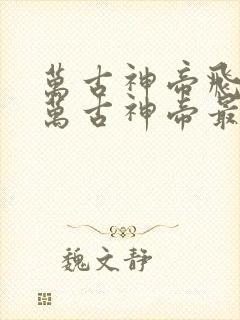 萬古神帝飛
萬古神帝最
魏文靜